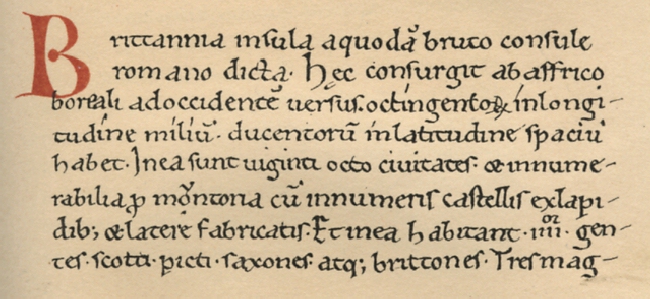 Brittannia insula a quodā bruto consule
romano dicta. hęc consurgit ab affrico
boreali ad occidentē uersus. octingentoꝝ in longi-
tudine miliū. ducentorū in latitudine spaciū
habet. In ea sunt uiginti octo ciuitates. & innume-
rabilia ꝓmontoria cū innumeris castellis ex lapi-
dib; & latere fabricatis. Et in ea habitant .iiiior. gen-
tes. scotti. picti. saxones. atq; brittones. Tres mag-